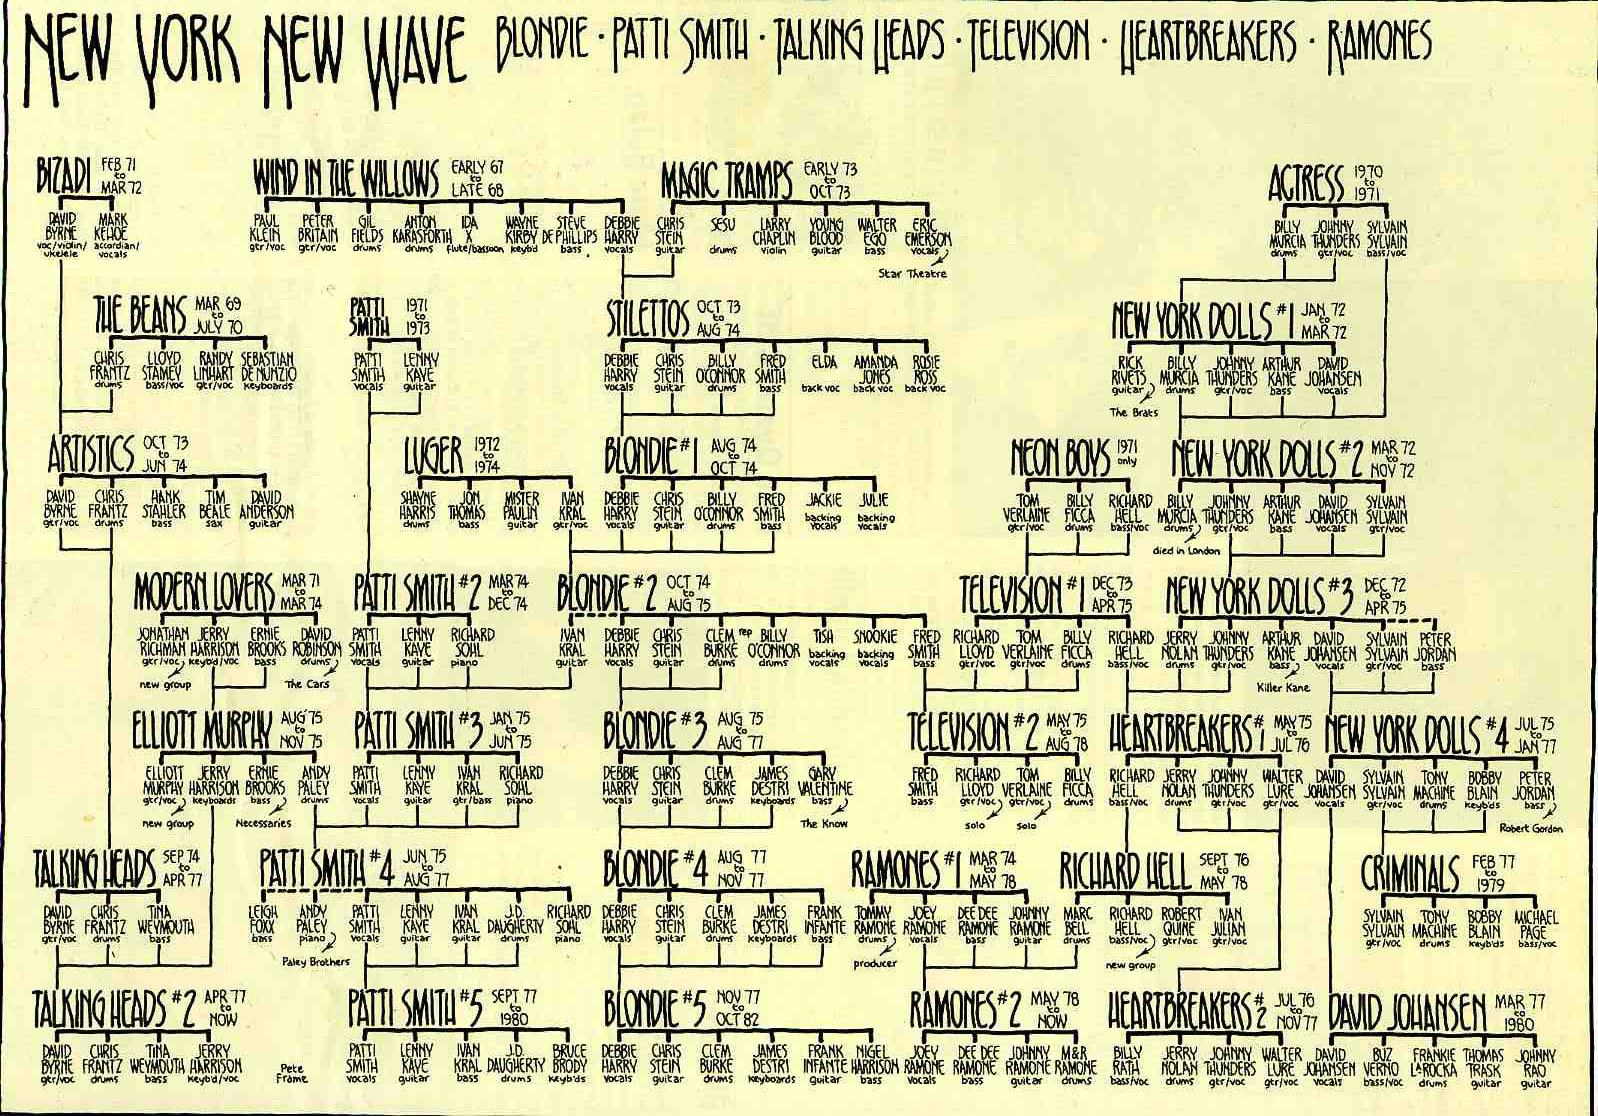 NEW YORK NEW WAVE BLONDIE · PATTI SMITH · TALKING HEADS · TELEVISION · HEARTBREAKERS · RAMONES
BIZADI FEB 71 to MAR 72
DAVID BYRNE voc/violin/ukelele
MARK KEHOE accordian/vocals
WIND IN THE WILLOWS EARLY 67 to LATE 68
PAUL KLEIN gtr/voc
PETER BRITAIN gtr/voc
GIL FIELDS drums
ANTON KARASFORTH drums
IDA X flute/bassoon
WAYNE KIRBY keybd
STEVE DE PHILLIPS bass
DEBBIE HARRY vocals
MAGIC TRAMPS EARLY 73 to OCT 73
CHRIS STEIN guitar
SESU drums
LARRY CHAPLIN violin
YOUNG BLOOD guitar
WALTER EGO bass
ERIC EMERSON vocals
Star Theatre
ACTRESS 1970 to 1971
BILLY MURCIA drums
JOHNNY THUNDERS gtr/voc
SYLVAIN SYLVAIN bass/voc
THE BEANS MAR 69 to JULY 70
CHRIS FRANTZ drums
LLOYD STAMEY bass/voc
RANDY LINHART gtr/voc
SEBASTIAN DE NUNZIO keyboards
PATTI SMITH 1971 to 1973
PATTI SMITH vocals
LENNY KAYE guitar
STILETTOS OCT 73 to AUG 74
DEBBIE HARRY vocals
CHRIS STEIN guitar
BILLY O'CONNOR drums
FRED SMITH bass
ELDA back voc
AMANDA JONES back voc
ROSIE ROSS back voc
NEW YORK DOLLS #1 JAN 72 to MAR 72
RICK RIVETS guitar
The Brats
BILLY MURCIA drums
JOHNNY THUNDERS gtr/voc
ARTHUR KANE bass
DAVID JOHANSEN vocals
ARTISTICS OCT 73 to JUN 74
DAVID BYRNE gtr/voc
CHRIS FRANTZ drums
HANK STAHLER bass
TIM BEALE sax
DAVID ANDERSON guitar
LUGER 1972 to 1974
SHAYNE HARRIS drums
JON THOMAS bass
MISTER PAULIN guitar
IVAN KRAL gtr/voc
BLONDIE #1 AUG 74 to OCT 74
DEBBIE HARRY vocals
CHRIS STEIN guitar
BILLY O'CONNOR drums
FRED SMITH bass
JACKIE backing vocals
JULIE backing vocals
NEON BOYS 1971 only
TOM VERLAINE gtr/voc
BILLY FICCA drums
RICHARD HELL bass/voc
NEW YORK DOLLS #2 MAR 72 to NOV 72
BILLY MURCIA drums
died in London
JOHNNY THUNDERS gtr/voc
ARTHUR KANE bass
DAVID JOHANSEN vocals
SYLVAIN SYLVAIN gtr/voc
MODERN LOVERS MAR 71 to MAR 74
JONATHAN RICHMAN gtr/voc
new group
JERRY HARRISON keybd/voc
ERNIE BROOKS bass
DAVID ROBINSON drums
The Cars
PATTI SMITH #2 MAR 74 to DEC 74
PATTI SMITH vocals
LENNY KAYE guitar
RICHARD SOHL piano
BLONDIE #2 OCT 74 to AUG 75
IVAN KRAL guitar
DEBBIE HARRY vocals
CHRIS STEIN guitar
CLEM BURKE drums
rep BILLY O'CONNOR drums
TISH backing vocals
SNOOKIE backing vocals
FRED SMITH bass
TELEVISION #1 DEC 73 to APR 75
RICHARD LLOYD gtr/voc
TOM VERLAINE gtr/voc
BILLY FICCA drums
RICHARD HELL bass/voc
NEW YORK DOLLS #3 DEC 72 to APR 75
JERRY NOLAN drums
JOHNNY THUNDERS gtr/voc
ARTHUR KANE bass
Killer Kane
DAVID JOHANSEN vocals
SYLVAIN SYLVAIN gtr/voc
PETER JORDAN bass
ELLIOTT MURPHY AUG 75 to NOV 75
ELLIOTT MURPHY gtr/voc
new group
JERRY HARRISON keyboards
ERNIE BROOKS bass
Necessaries
ANDY PALEY drums
PATTI SMITH #3 JAN 75 to JUN 75
PATTI SMITH vocals
LENNY KAYE guitar
IVAN KRAL gtr/bass
RICHARD SOHL piano
BLONDIE #3 AUG 75 to AUG 77
DEBBIE HARRY vocals
CHRIS STEIN guitar
CLEM BURKE drums
JAMES DESTRI keyboards
GARY VALENTINE bass
The Know
TELEVISION #2 MAY 75 to AUG 78
FRED SMITH bass
RICHARD LLOYD gtr/voc
solo
TOM VERLAINE gtr/voc
solo
BILLY FICCA drums
HEARTBREAKERS #1 MAY 75 to JUL 76
RICHARD HELL bass/voc
JERRY NOLAN drums
JOHNNY THUNDERS gtr/voc
WALTER LURE gtr/voc
NEW YORK DOLLS #4 JUL 75 to JAN 77
DAVID JOHANSEN vocals
SYLVAIN SYLVAIN gtr/voc
TONY MACHINE drums
BOBBY BLAIN keyb'ds
PETER JORDAN bass
Robert Gordon
TALKING HEADS SEP 74 to APR 77
DAVID BYRNE gtr/voc
CHRIS FRANTZ drums
TINA WEYMOUTH bass
PATTI SMITH #4 JUN 75 to AUG 77
LEIGH FOXX bass
ANDY PALEY piano
Paley Brothers
PATTI SMITH vocals
LENNY KAYE guitar
IVAN KRAL guitar
J.D. DAUGHERTY drums
RICHARD SOHL piano
BLONDIE #4 AUG 77 to NOV 77
DEBBIE HARRY vocals
CHRIS STEIN guitar
CLEM BURKE drums
JAMES DESTRI keyboards
FRANK INFANTE bass
RAMONES #1 MAR 74 to MAY 78
TOMMY RAMONE drums
producer
JOEY RAMONE vocals
DEE DEE RAMONE bass
JOHNNY RAMONE guitar
RICHARD HELL SEPT 76 to MAY 78
MARC BELL drums
RICHARD HELL bass/voc
new group
ROBERT QUINE gtr/voc
IVAN JULIAN gtr/voc
CRIMINALS FEB 77 to 1979
SYLVAIN SYLVAIN gtr/voc
TONY MACHINE drums
BOBBY BLAIN keyb'ds
MICHAEL PAGE bass/voc
TALKING HEADS #2 APR 77 to NOW
DAVID BYRNE gtr/voc
CHRIS FRANTZ drums
TINA WEYMOUTH bass
JERRY HARRISON keybd/voc
Pete Frame
PATTI SMITH #5 SEPT 77 to 1980
PATTI SMITH vocals
LENNY KAYE guitar
IVAN KRAL bass
J.D. DAUGHERTY drums
BRUCE BRODY keyb'ds
BLONDIE #5 NOV 77 to OCT 82
DEBBIE HARRY vocals
CHRIS STEIN guitar
CLEM BURKE drums
JAMES DESTRI keyboards
FRANK INFANTE guitar
NIGEL HARRISON bass
RAMONES #2 MAY 78 to NOW
JOEY RAMONE vocals
DEE DEE RAMONE bass
JOHNNY RAMONE guitar
M&R RAMONE drums
HEARTBREAKERS #2 JUL 76 to NOV 77
BILLY RATH bass/voc
JERRY NOLAN drums
JOHNNY THUNDERS gtr/voc
WALTER LURE gtr/voc
DAVID JOHANSEN MAR 77 to 1980
DAVID JOHANSEN vocals
BUZ VERNO bass/voc
FRANKIE LAROCKA drums
THOMAS TRASK guitar
JOHNNY RAO guitar